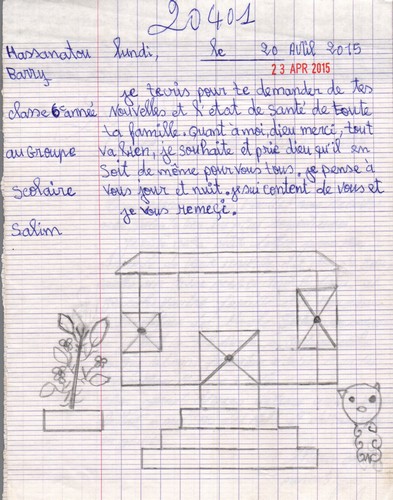 20401
Hassanatou lundi, le 20 Avril 2015
23 APR 2015
Barry
je tecris pour te demander de tes
classe 6e année Nouvelles et l'état de santé de toute
ta famille. Quant à moi, dieu merci, tout
au Groupe va bien, je souhaite et prie dieu qu'il en
soit de même pour vous tous. je pense à
Scolaire vous jour et nuit. je sui content de vous et
je vous remeçi.
Salim